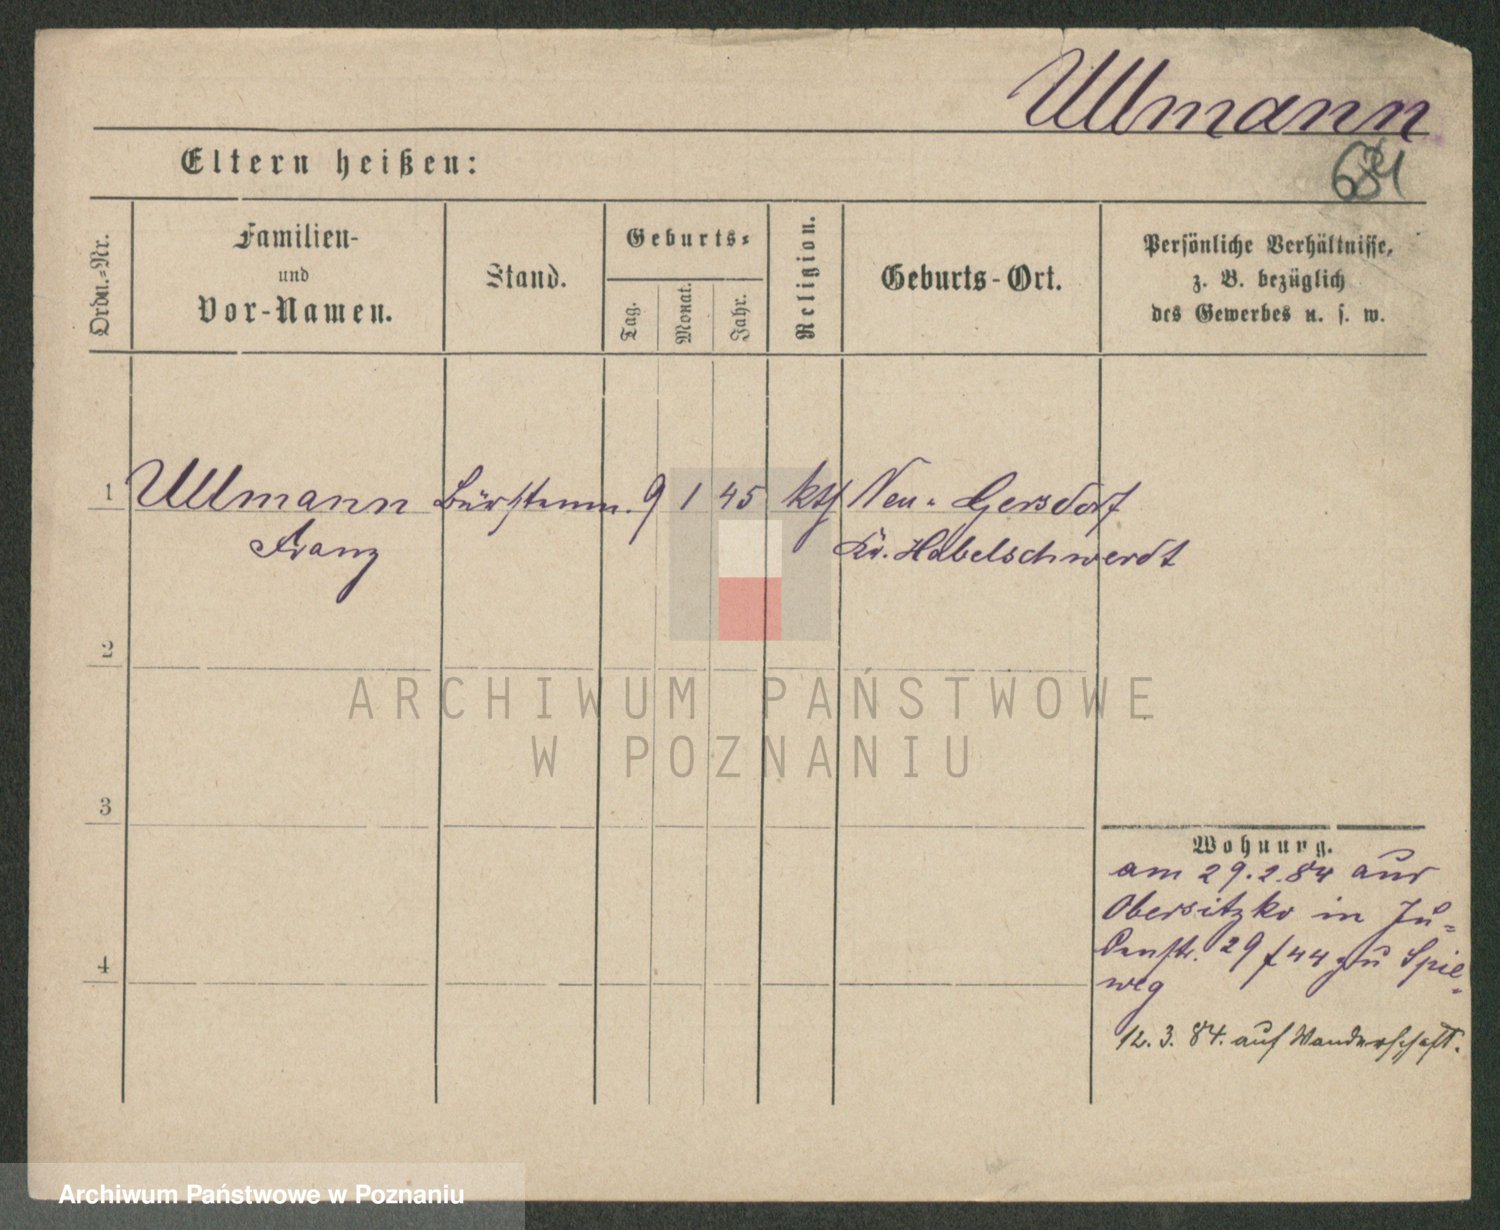 Ullmann
Eltern heißen:
Ordn.-Nr.
Familien-
und
Vor-Namen.
Stand.
Geburts-
Tag.
Monat.
Jahr.
Religion.
Geburts-Ort.
Persönliche Verhältnisse,
z. B. bezüglich
des Gewerbes u. s. w.
1 Ullmann Bürstenm. 9 1 45 kth Neu-Gersdorf
Franz Kr. Habelschwerdt
2
ARCHIWUM PAŃSTWOWE
W POZNANIU
3
Wohnung.
am 29.2.84 aus
Obersitzko in Ju-
denstr. 29 / 44 zu Spil-
weg
4
12. 3. 84. auf Wanderschaft.
Archiwum Państwowe w Poznaniu